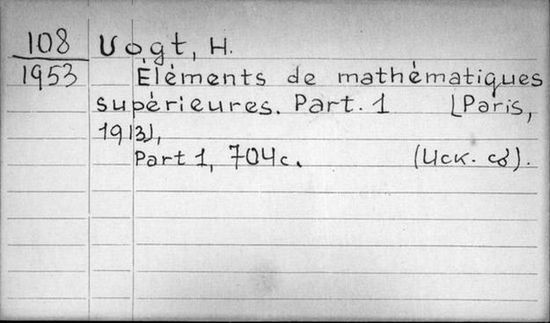 108 Vogt, H.
1953 Éléments de mathématiques
supérieures. Part. 1 [Paris,
1913],
Part 1, 704 c. (Иск. сб).